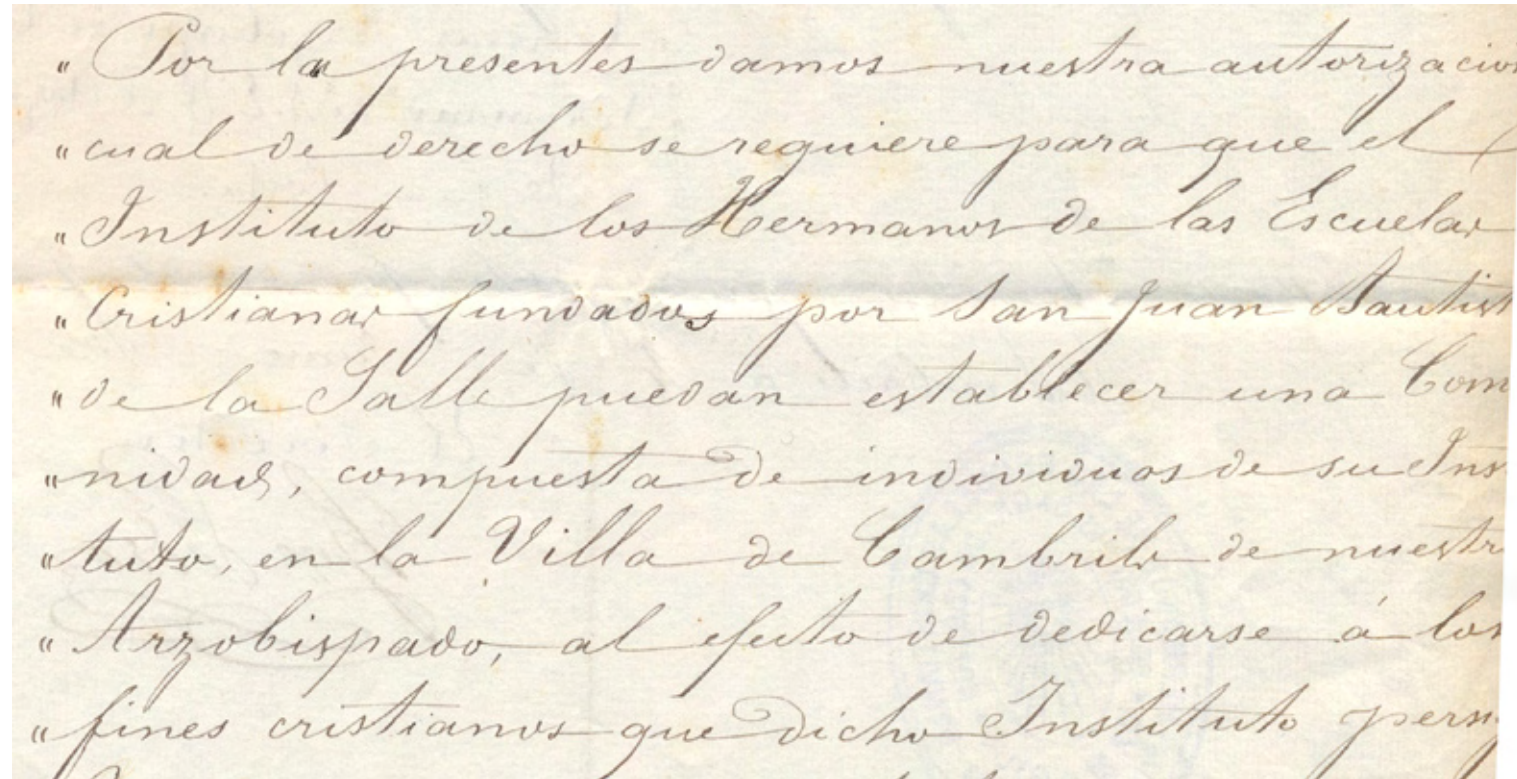 " Por la presentes damos nuestra autorizacion
" cual de derecho se requiere para que el
" Instituto de los Hermanos de las Escuelas
" Cristianas fundados por San Juan Bautist
" de la Salle puedan establecer una Com
" nidad, compuesta de individuos de su Ins
" tuto, en la Villa de Cambrils de nuestr
" Arzobispado, al efecto de dedicarse á los
" fines cristianos que dicho Instituto pers